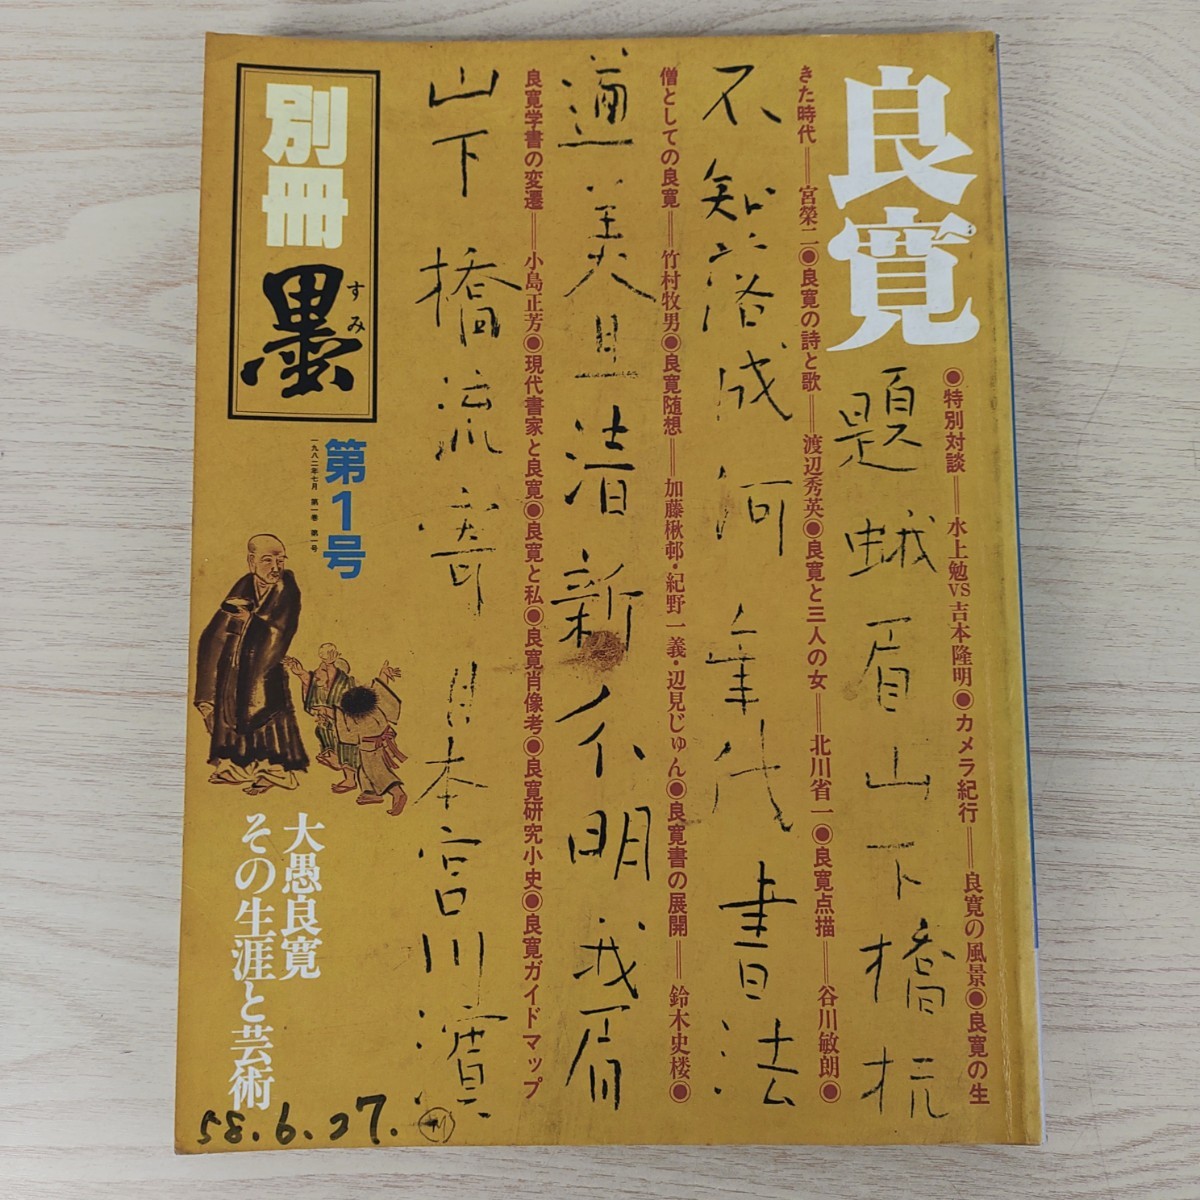 良寛
●特別対談＝水上勉VS吉本隆明●カメラ紀行＝良寛の風景●良寛の生
きた時代＝宮榮二●良寛の詩と歌＝渡辺秀英●良寛と三人の女＝北川省一●良寛点描＝谷川敏朗●
僧としての良寛＝竹村牧男●良寛随想＝加藤楸邨・紀野一義・辺見じゅん●良寛書の展開＝鈴木史楼●
良寛学書の変遷＝小島正芳●現代書家と良寛●良寛と私●良寛肖像考●良寛研究小史●良寛ガイドマップ
題蛾眉山下橋杭
不知落成何年代書法
遒美且清新分明我眉
山下橋流寄日本宮川濱
別冊
墨
すみ
第1号
一九八二年七月 第一巻 第一号
大愚良寛
その生涯と芸術
58.6.27.